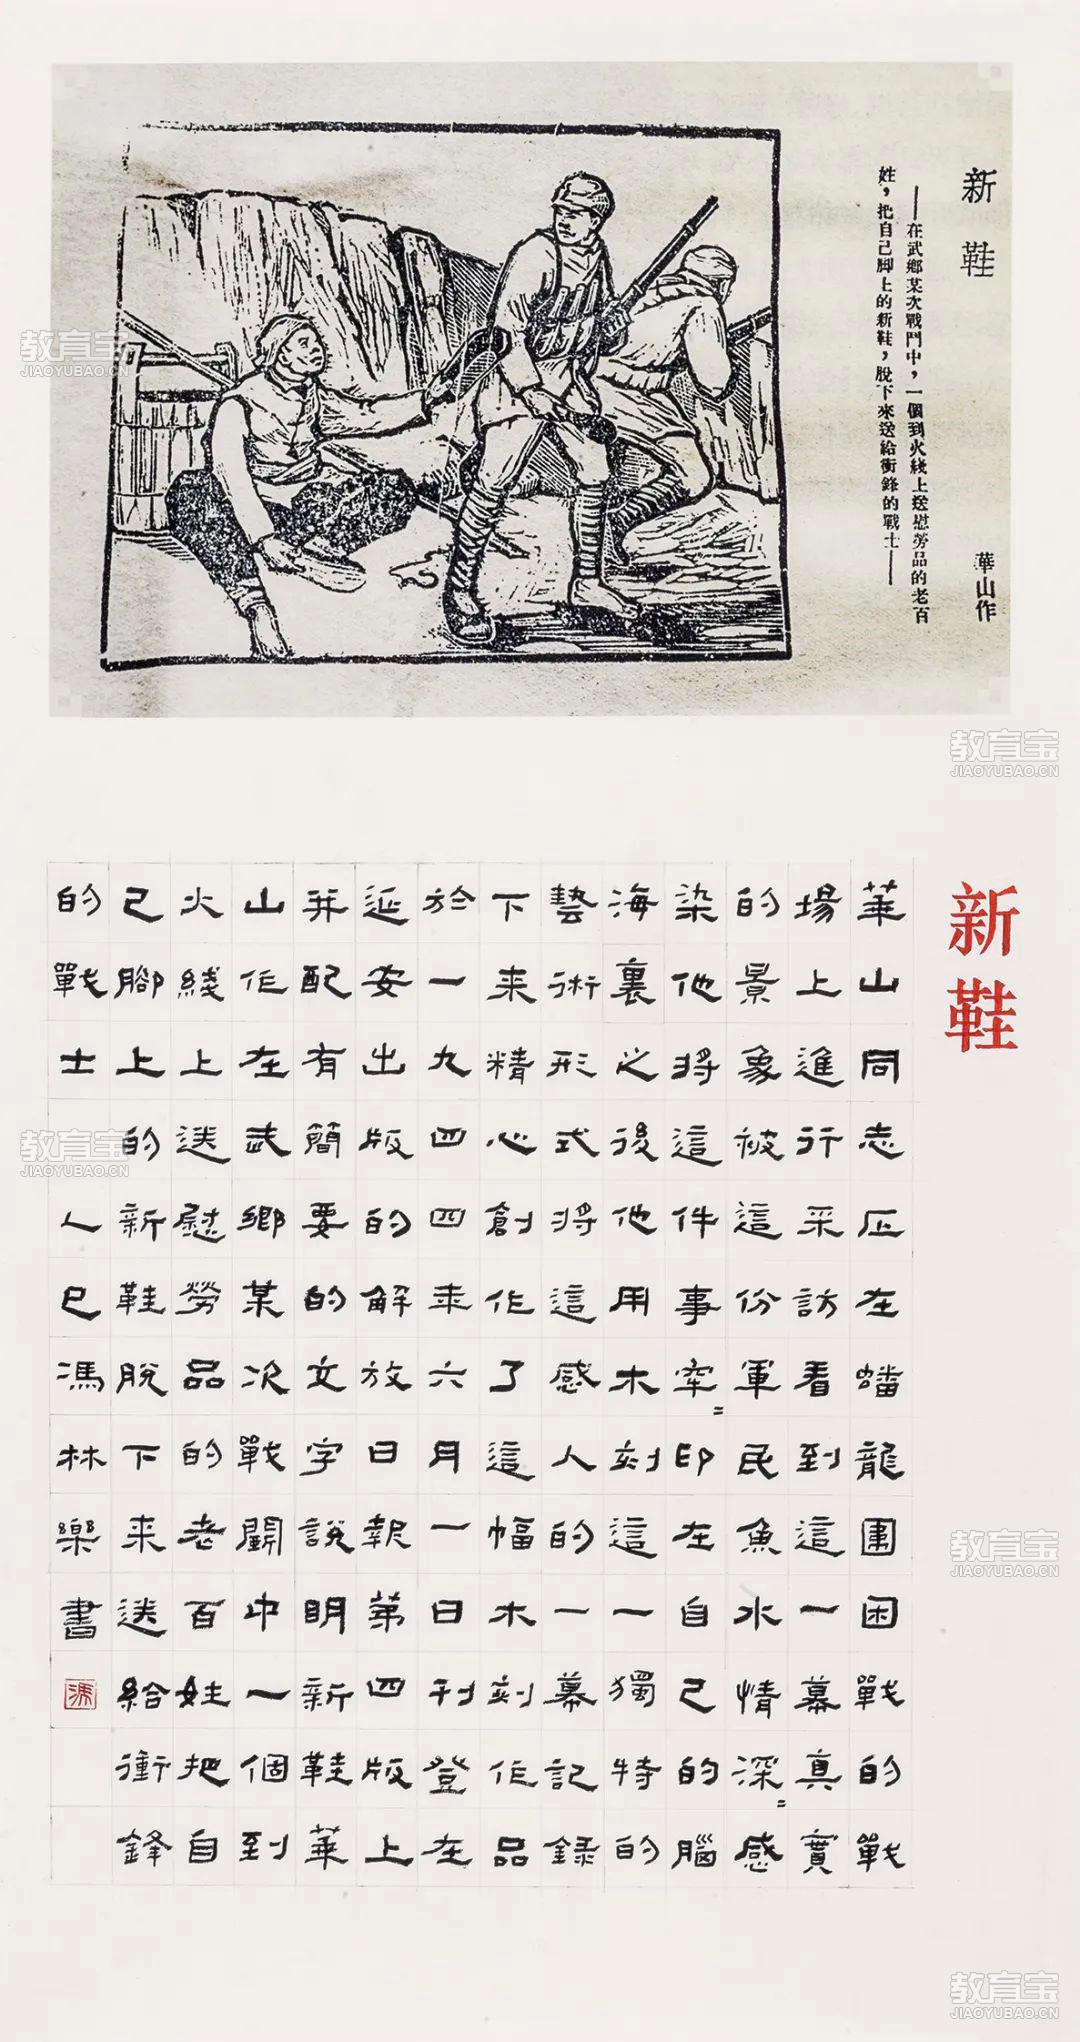 新鞋
華山作
——在武鄉某次戰鬥中，一個到火綫上送慰勞品的老百
姓，把自己脚上的新鞋，脫下來送給衝鋒的戰士——
新鞋
華山同志正在蟠龍圍困戰的戰
場上進行采訪看到這一幕真實
的景象被這份軍民魚水情深=感
染他將這件事牢=印在自己的腦
海裏之後他用木刻這一獨特的
藝術形式將這感人的一幕記錄
下来精心創作了這幅木刻作品
於一九四四年六月一日刊登在
延安出版的解放日報第四版上
并配有簡要的文字說明新鞋華
山作在武鄉某次戰鬭中一個到
火綫上送慰勞品的老百姓把自
己腳上的新鞋脫下来送給衝鋒
的戰士乙巳馮林樂書
馮
教育宝
JIAOYUBAO.CN
教育宝
JIAOYUBAO.CN
教育宝
JIAOYUBAO.CN
教育宝
JIAOYUBAO.CN
教育宝
JIAOYUBAO.CN